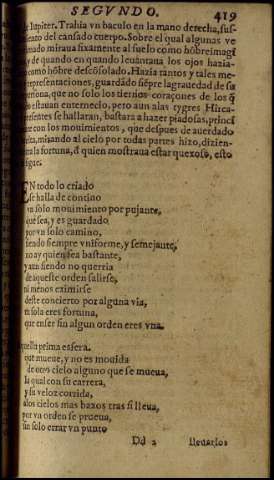 SEGVNDO. 419
de Iupiter. Trahia vn baculo en la mano derecha, sus-
tento del cansado cuerpo. Sobre el qual algunas ve
mado miraua fixamente al suelo como hõbre imagi
y de quando en quando leuantaua los ojos hazia
como hõbre descõsolado. Hazia tantos y tales me
representaciones, guardãdo siẽpre la grauedad de su
persona, que no solo los tiernos coraçones de los q̃
estauan enternecio, pero aun alas tygres Hirca-
presentes se hallaran, bastara a hazer piadosas, princi
con los mouimientos, que despues de auer dado
mirando al cielo por todas partes hizo, dizien-
a la fortuna, d̃ quien mostraua estar quexoso, esto
sigue.
EN todo lo criado
se halla de contino
vn solo mouimiento por pujante,
que sea, y es guardado
por vn solo camino,
siendo siempre vniforme, y semejante,
no ay quien sea bastante,
y aun siendo no querria
de aqueste orden salirse,
ni menos eximirse
deste concierto por alguna via,
tu sola eres fortuna,
que en ser sin algun orden eres vna.
Aquella prima esfera,
que mueue, y no es mouida
de otro cielo alguno que se mueua,
la qual con su carrera,
y su veloz corrida,
a los cielos mas baxos tras si lleua,
por vn orden se prueua,
sin solo errar vn punto
Dd 2 lleuarlos